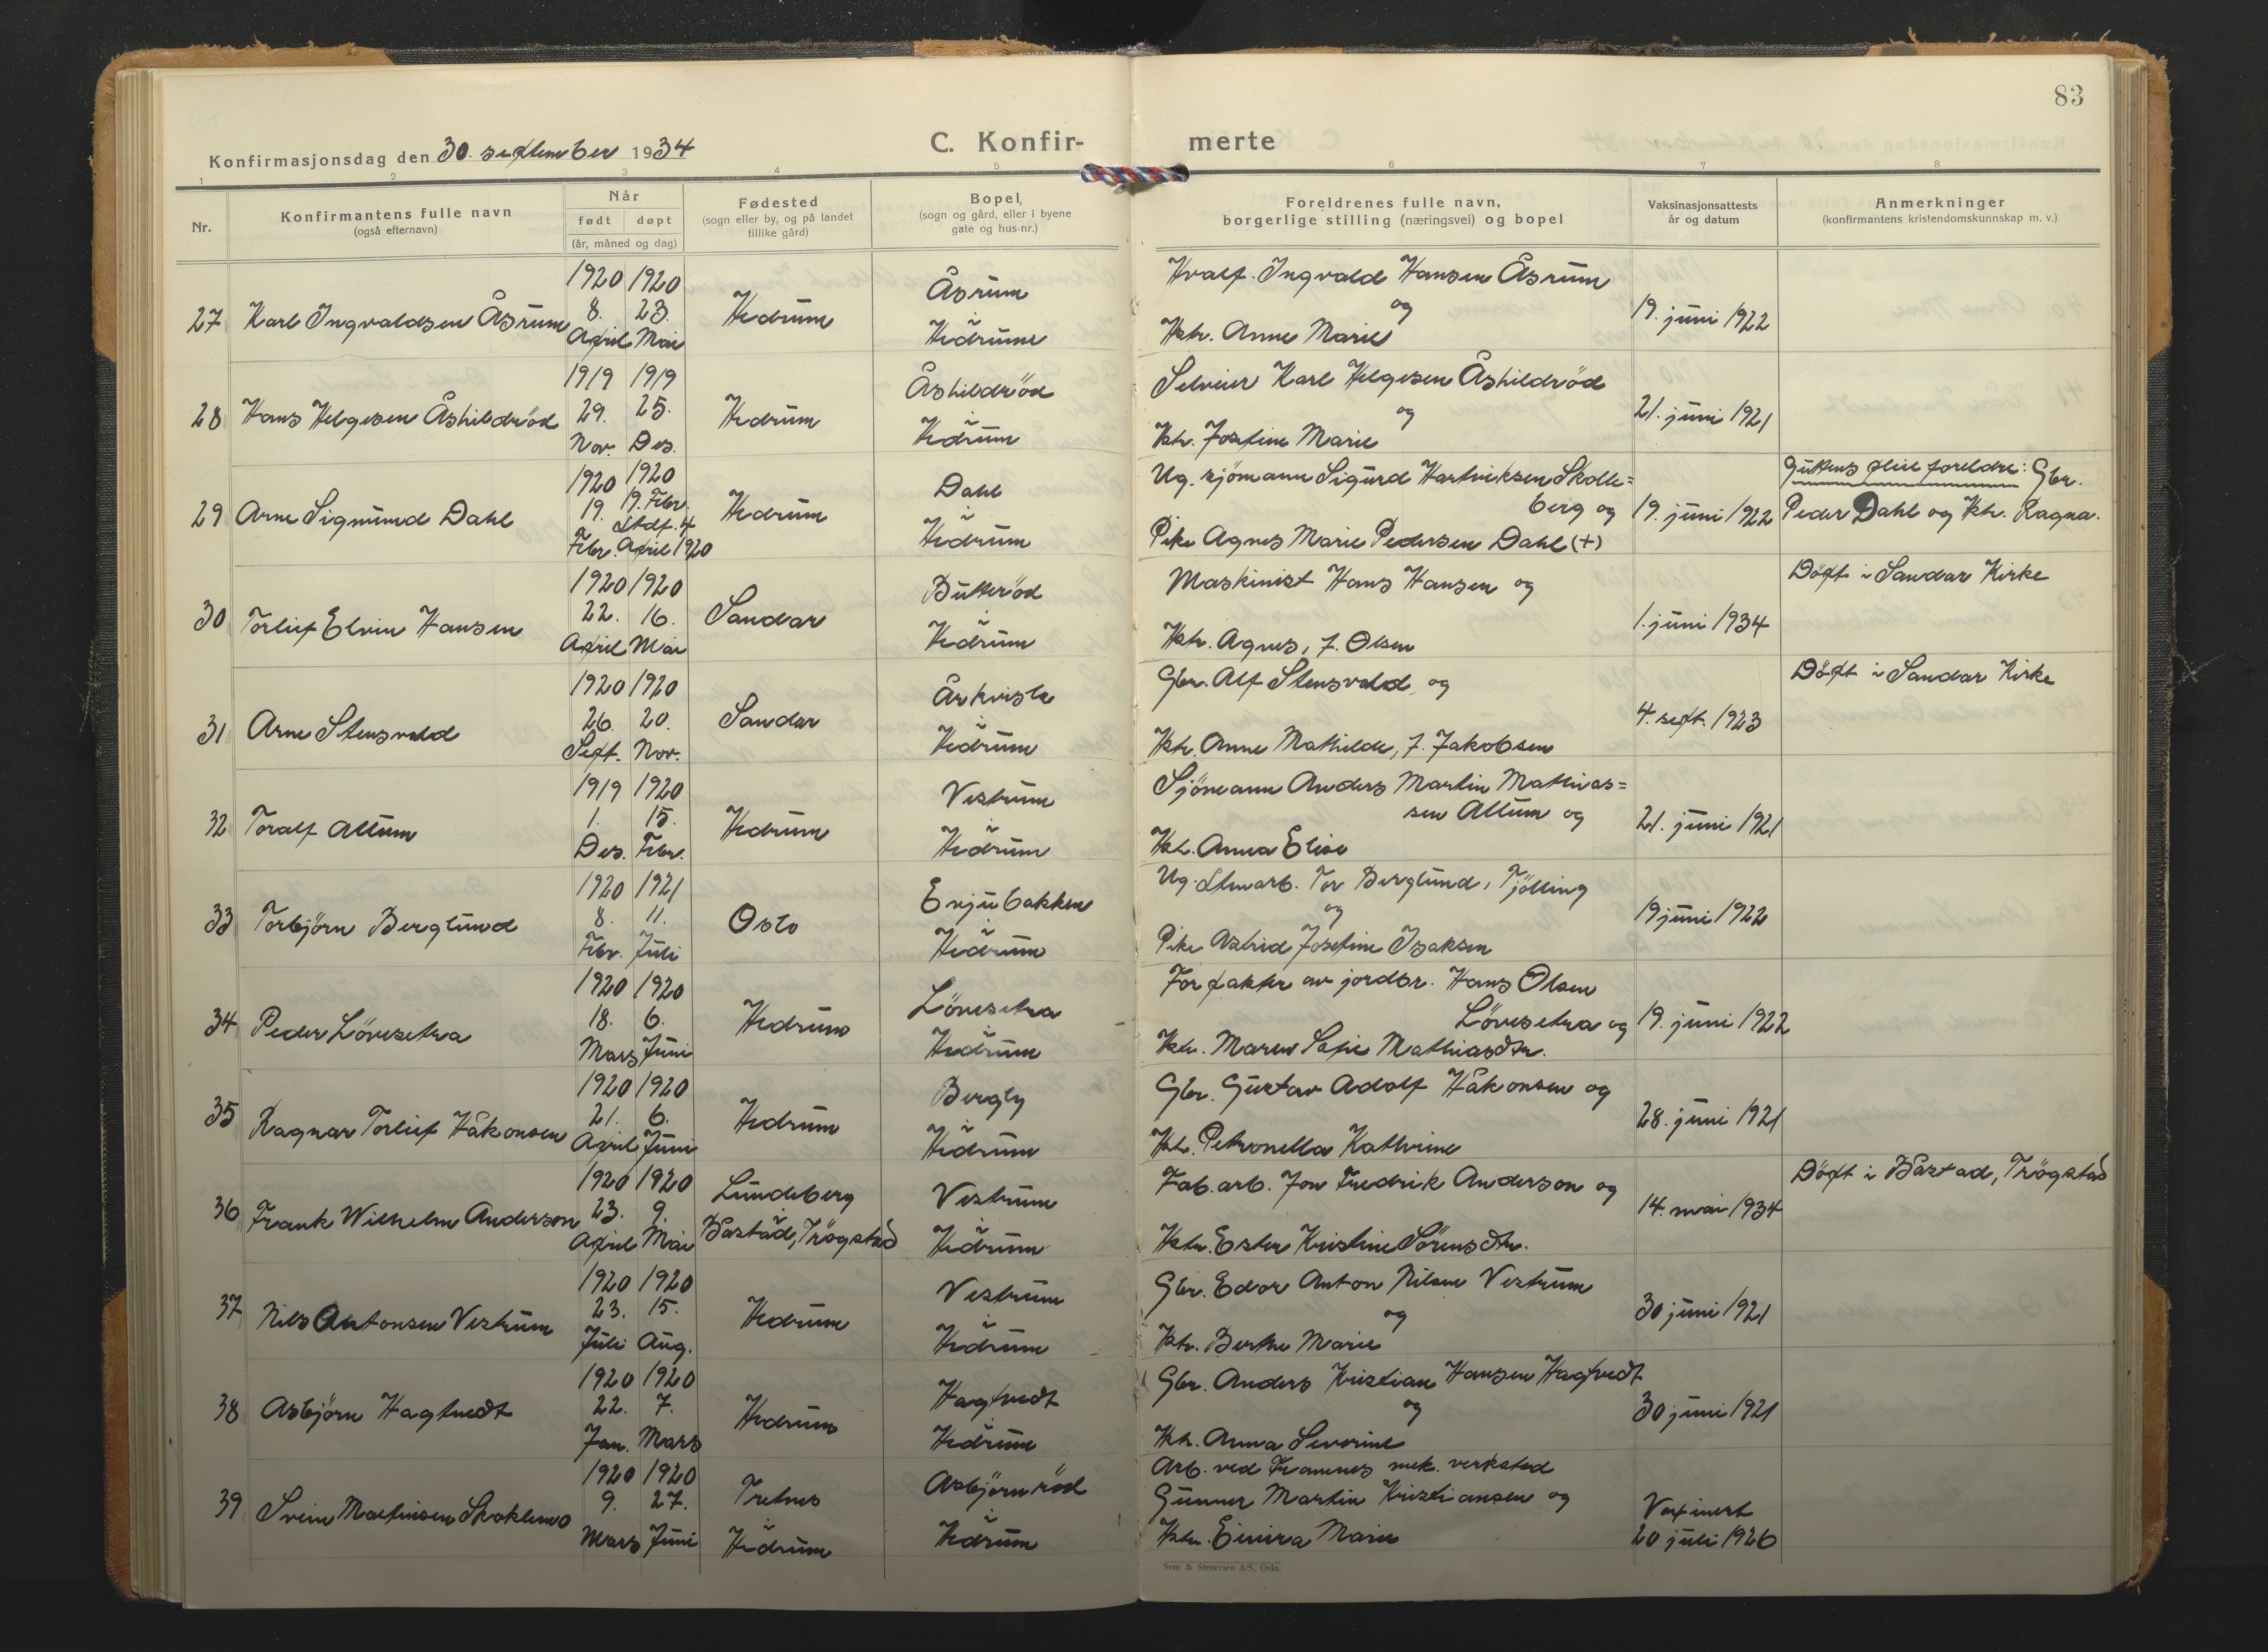 83
Konfirmasjonsdag den 30. september 1934
C. Konfir- merte
1 2 3 4 5 6 7 8
Nr.
Konfirmantens fulle navn
(også efternavn)
Når
født døpt
(år, måned og dag)
Fødested
(sogn eller by, og på landet
tillike gård)
Bopel,
(sogn og gård, eller i byene
gate og hus-nr.)
Foreldrenes fulle navn,
borgerlige stilling (næringsvei) og bopel
Vaksinasjonsattests
år og datum
Anmerkninger
(konfirmantens kristendomskunnskap m. v.)
27 Karl Ingvaldsen Åsrum
1920 1920
8. 23.
April Mai
Hedrum
Åsrum
Hedrum
Hvalf. Ingvald Hansen Åsrum
og
Hstr. Anne Marie
19. juni 1922
28 Hans Helgesen Åshildröd
1919 1919
29. 25.
Nov. Des.
Hedrum
Åshildröd
Hedrum
Selveier Karl Helgesen Åshildröd
og
Hstr. Josefine Marie
21. juni 1921
29 Arne Sigmund Dahl
1920 1920
19. 19. Febr.
Stdf. 4
Febr. April 1920
Hedrum
Dahl
Hedrum
Ug. sjömann Sigurd Hartviksen Skolle=
berg og
Pike Agnes Marie Pedersen Dahl (+)
19. juni 1922
Guttens pleieforeldre: Gbr.
Peder Dahl og Hstr. Ragna.
30 Torleif Elvin Hansen
1920 1920
22. 16.
April Mai
Sandar
Butteröd
Hedrum
Maskinist Hans Hansen og
Hstr. Agnes, f. Olsen
1. juni 1934
Döpt i Sandar Kirke
31 Arne Stensvold
1920 1920
26. 20.
Sept. Nov.
Sandar
Årkvisla
Hedrum
Gbr. Alf Stensvold og
Hstr. Anne Mathilde, f. Jakobsen
4. sept. 1923
Döpt i Sandar Kirke
32 Toralf Allum
1919 1920
1. 15.
Des. Febr.
Hedrum
Vestrum
Hedrum
Sjömann Anders Martin Mathias=
sen Allum og
Hstr. Anna Elise
21. juni 1921
33 Torbjörn Berglund
1920 1921
8. 11.
Febr. Juli
Oslo
Enjubakken
Hedrum
Ug. Stenarb. Tor Berglund, Tjölling
og
Pike Astrid Josefine Isaksen
19 juni 1922
34 Peder Lövesetra
1920 1920
18. 6.
Mars Juni
Hedrum
Lövesetra
Hedrum
Forpakter av jordbr. Hans Olsen
Lövesetra og
Hstr. Maren Sofie Mathiasdtr.
19. juni 1922
35 Ragnar Torleif Håkonsen
1920 1920
21. 6.
April Juni
Hedrum
Bergly
Hedrum
Gbr. Gustav Adolf Håkonsen og
Hstr. Petronella Kathrine
28. juni 1921
36 Frank Wilhelm Anderson
1920 1920
23. 9.
April Mai
Lundeberg
Båstad, Trögstad
Vestrum
Hedrum
Fab.arb. Jon Fredrik Anderson og
Hstr. Ester Kristine Sörensdtr.
14. mai 1934
Döpt i Båstad, Trögstad
37 Nils Antonsen Vestrum
1920 1920
23. 15.
Juli Aug.
Hedrum
Vestrum
Hedrum
Gbr. Edor Anton Nilsen Vestrum
og
Hstr. Berthe Marie
30 juni 1921
38 Asbjörn Hagtvedt
1920 1920
22. 7.
Jan. Mars
Hedrum
Hagtvedt
Hedrum
Gbr. Anders Kristian Hansen Hagtvedt
og
Hstr. Anna Severine
30 juni 1921
39 Svein Martinsen Skoklemo
1920 1920
9. 27.
Mars Juni
Tretnes
Hedrum
Asbjörnröd
Hedrum
Arb. ved Framnes mek. verksted
Gunner Martin Kristiansen og
Hstr. Einera Marie
Vaxinert
20 juli 1926
Sem & Stenersen A/S, Oslo.